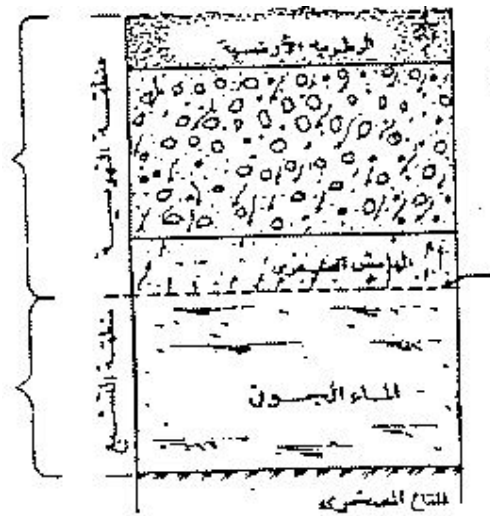 الرطوبة الأرضية
منطقة التهوية
الهامش الشعري
منطقة التشبع
الماء الجوفي
القاع